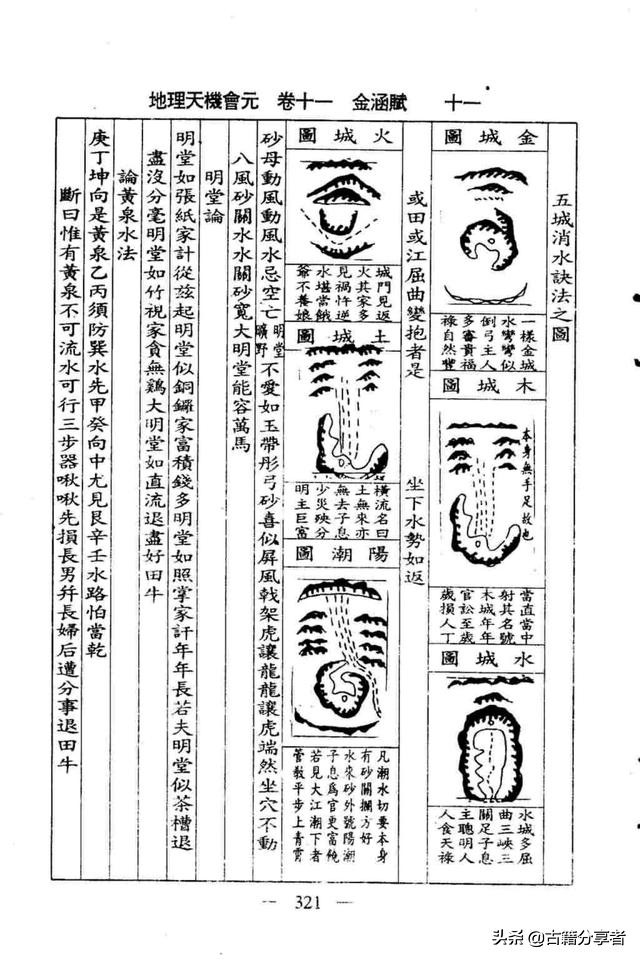 地理天機會元　卷十一　金涵賦　十一
五城消水訣法之圖
金城圖
一樣金城
水彎彎似
倒弓主人
多審貴福
祿自然豐
木城圖
本身無手足故也
當直當中
射其名號
木城年年
官訟至歲
歲損人丁
水城圖
水城多屈
曲三峽三
關足子息
主聰明人
人食天祿
或田或江屈曲變抱者是
坐下水勢如返
火城圖
城門見返
火其家多
見禍忤逆
水堪當餓
爺不養娘
土城圖
橫流名曰
土無來亦
無去子息
少災殃分
明主巨富
陽潮圖
凡潮水切要本身
有砂關攔方好
水來砂外號陽潮
子息爲官更富饒
若見大江潮下者
管教平步上青霄
砂母動風動風水忌空亡明堂曠野不愛如玉帶彤弓砂喜似屏風戟架虎讓龍龍讓虎端然坐穴不動
八風砂關水水關砂寬大明堂能容萬馬
明堂論
明堂如張紙家計從兹起明堂似銅鑼家富積錢多明堂如照掌家計年年長若夫明堂似茶槽退
盡沒分毫明堂如竹視家貪無鷄大明堂如直流退盡好田牛
論黃泉水法
庚丁坤向是黃泉乙丙須防巽水先甲癸向中尤見艮辛壬水路怕當乾
斷曰惟有黃泉不可流水可行三步器啾啾先損長男幷長婦后遭分事退田牛
— 321 —
头条 @古籍分享者